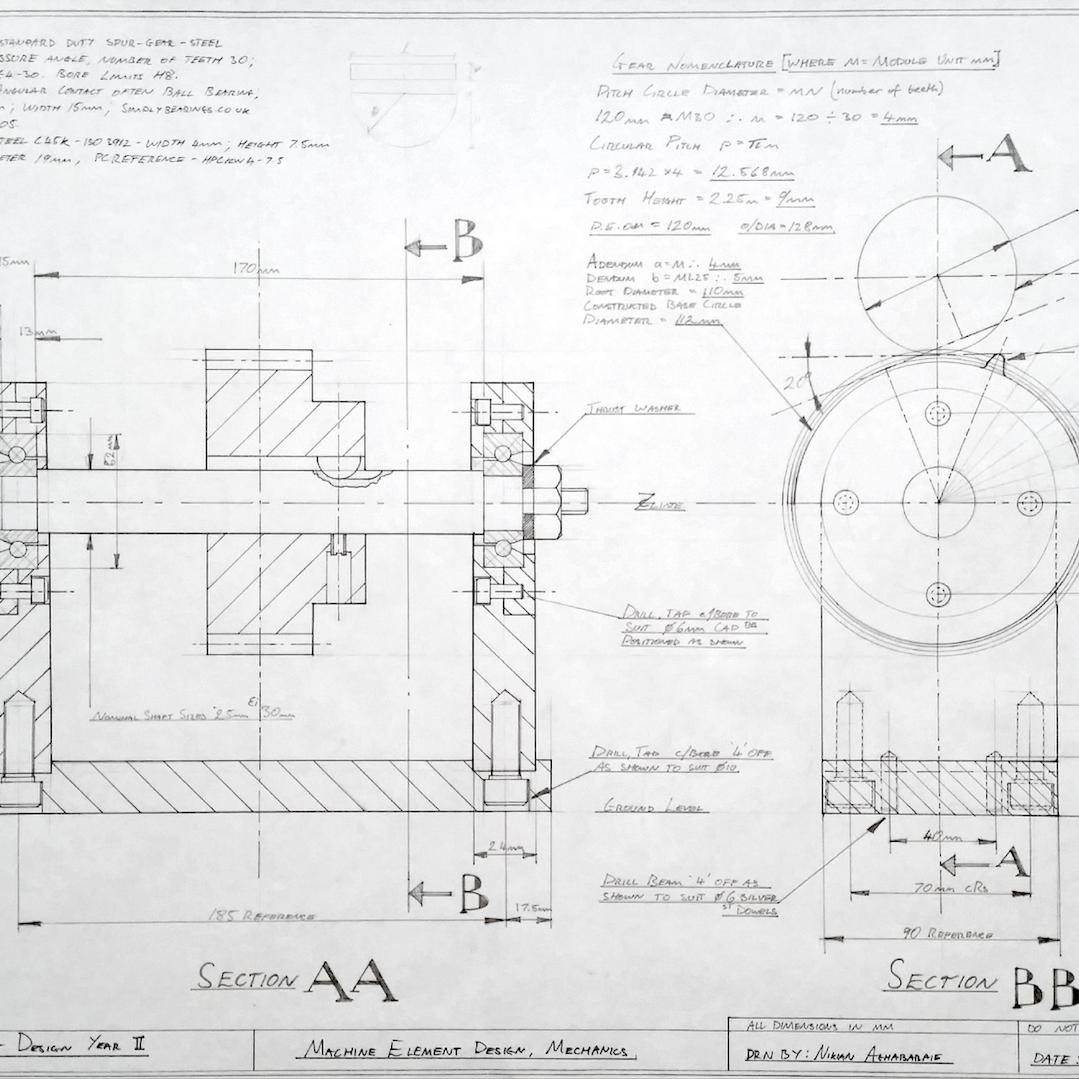 STANDARD DUTY SPUR-GEAR-STEEL
SSURE ANGLE, NUMBER OF TEETH 30;
4-30. BORE LIMITS H8.
NGULAR CONTACT OFTEN BALL BEARING,
; WIDTH 15mm; SIMPLYBEARINGS.CO.UK
05
TEEL C45K - ISO 3912 - WIDTH 4mm; HEIGHT 7.5mm
ETER 19mm, PC REFERENCE -
GEAR NOMENCLATURE [WHERE M= MODULE UNIT MM]
PITCH CIRCLE DIAMETER = MN (number of teeth)
120mm = M30 ∴ M = 120 ÷ 30 = 4mm
CIRCULAR PITCH P = πm
P = 3.142 x 4 = 12.568mm
TOOTH HEIGHT = 2.25m = 9mm
= 120mm O/DIA = 128mm
ADENDUM a = M ∴ 4mm
DENDUM b = M1.25 ∴ 5mm
ROOT DIAMETER = 110mm
CONSTRUCTED BASE CIRCLE
DIAMETER = 112mm
A
B
5mm
170mm
13mm
20°
62mm
THRUST WASHER
DRILL, TAP c/BORE TO
SUIT Ø6mm CAP
POSITIONED AS SHOWN
NOMINAL SHAFT SIZES 25mm 30mm
DRILL, TAP c/BORE '4' OFF
AS SHOWN TO SUIT Ø10.
GROUND LEVEL
24mm
40mm
A
B
DRILL BEAM '4' OFF AS
SHOWN TO SUIT Ø6 SILVER
ST DOWELS
70mm CRS
185 REFERENCE
17.5
90 REFERENCE
SECTION AA
SECTION BB
DESIGN YEAR II
MACHINE ELEMENT DESIGN, MECHANICS
ALL DIMENSIONS IN MM
DO NOT
DRN BY: NIKIAN AGHABABAIE
DATE: